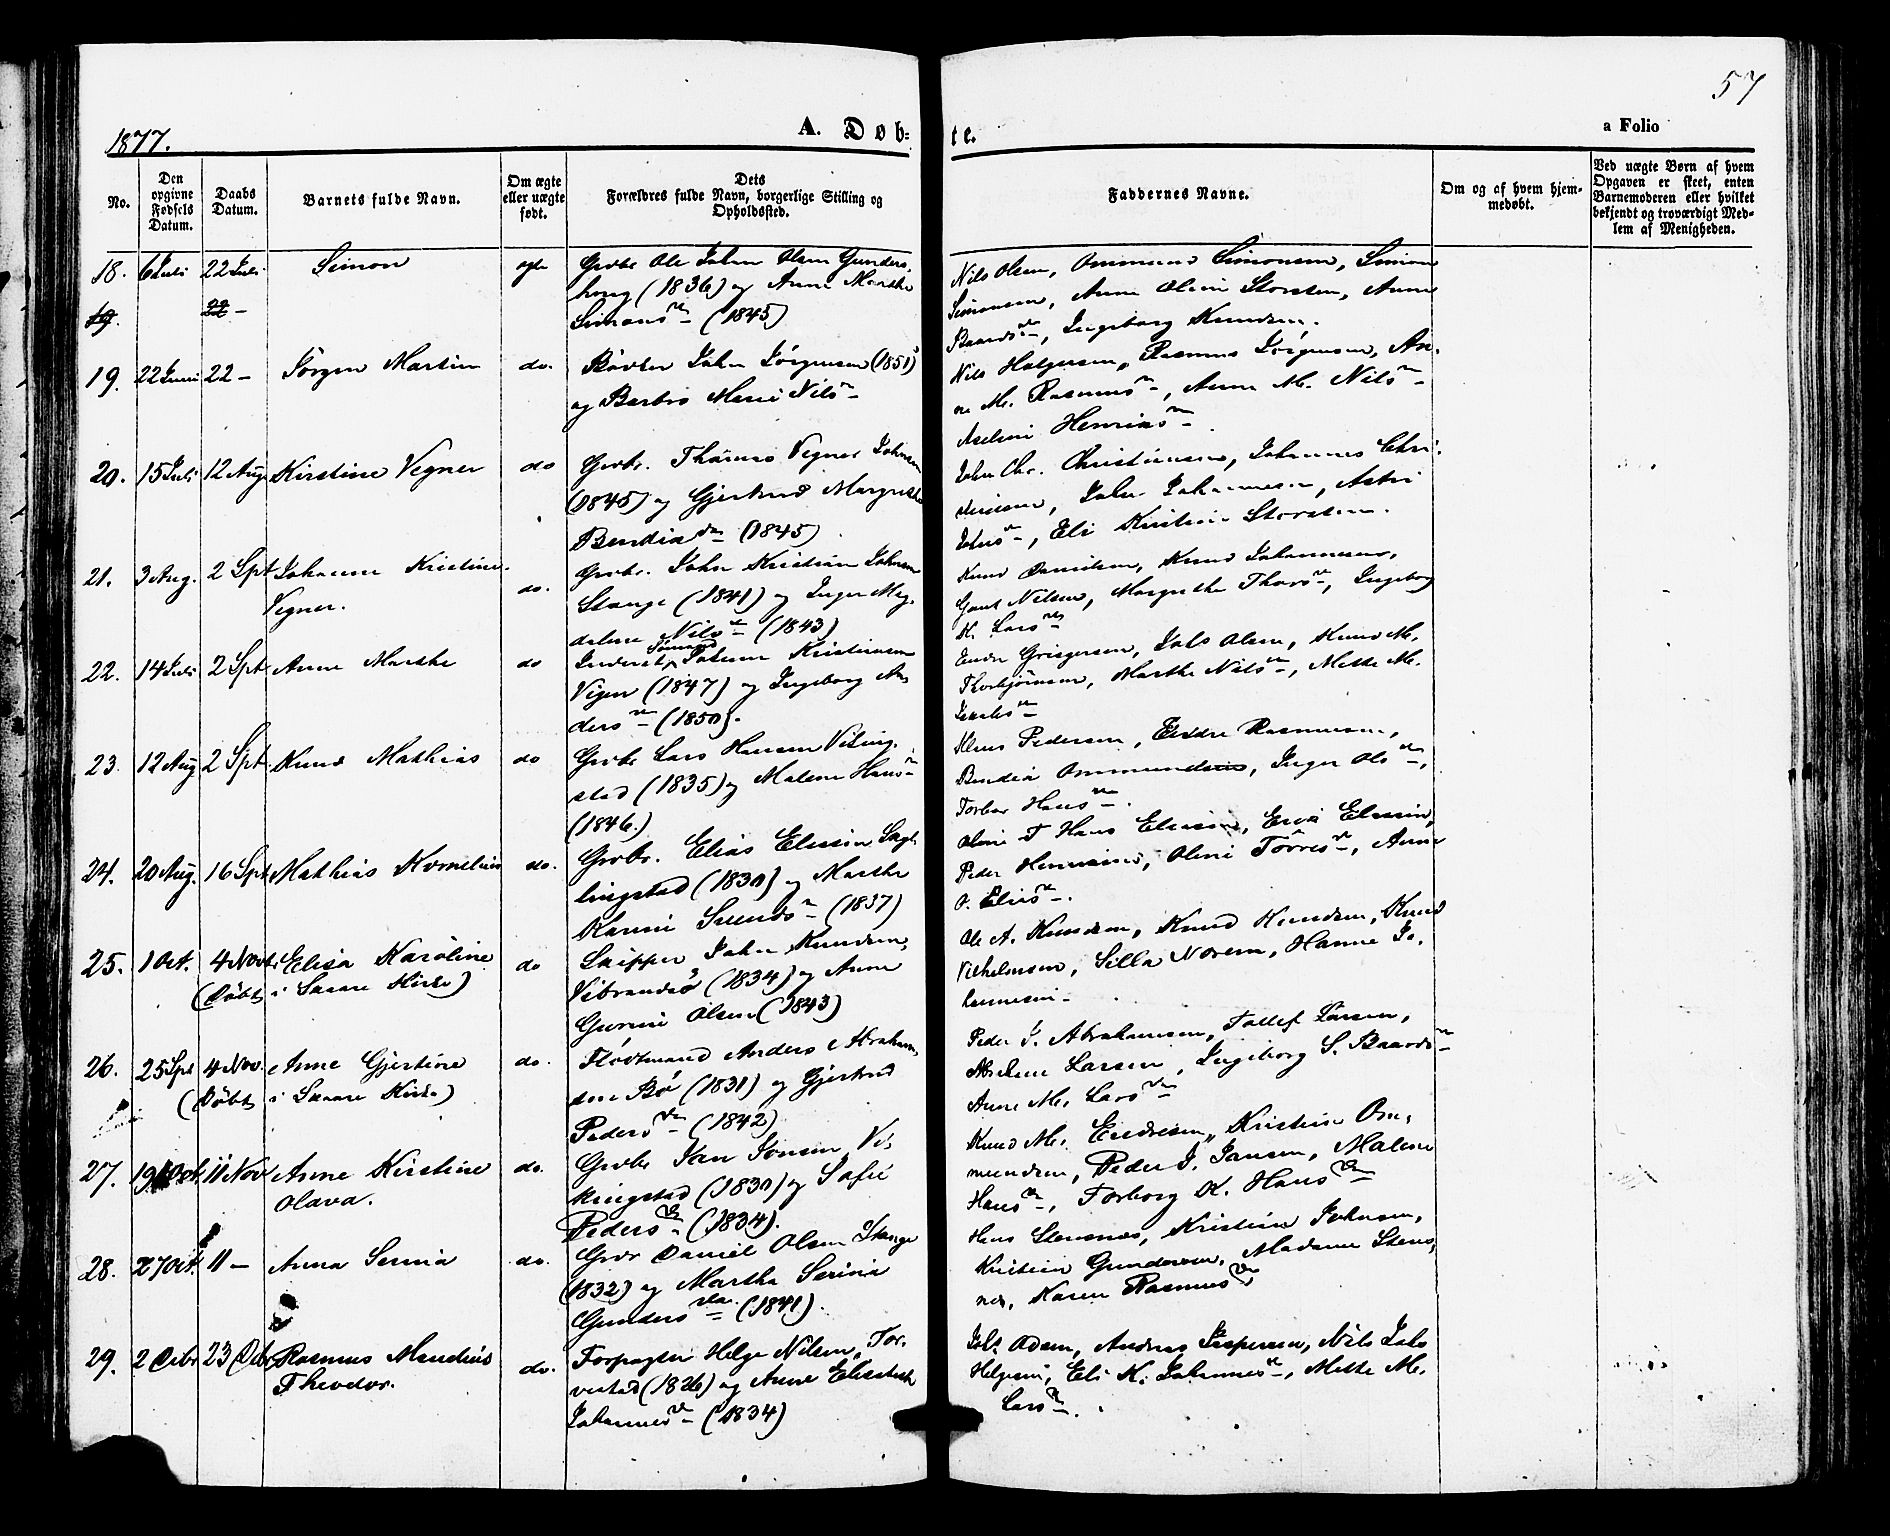 57
1877.
A. Døb-
te.
a Folio
No.
Den opgivne Fødsels Datum.
Daabs Datum.
Barnets fulde Navn.
Om ægte eller uægte født.
Dets Forældres fulde Navn, borgerlige Stilling og Opholdssted.
Faddernes Navne.
Om og af hvem hjem-
medøbt.
Ved uægte Børn af hvem
Opgaven er skeet, enten
Barnemoderen eller hvilket
bekjendt og troværdigt Med-
lem af Menigheden.
18. 6 Juli 22 Juli Simon ægte
Grbr Ole Johan Olsen Gunders-
houg (1836) og Anne Marthe
Simons - (1845)
Nils Olsen, Ommund Simonsen, Simon
Simonsen, Anne Olini Storsten, Anne
Baards -, Ingeborg Knudsen.
19.
19. 22 Juni 22 - Jørgen Martin do.
John Jørgensen (1851)
og Barbro Marie Nils -
Nils Holgersen, Rasmus Jørgensen, An-
ne M. Rasmus -, Anne M. Nils -
Henriks -
20. 15 Juli 12 Aug Kirstine Vegner do
Grbr. Thomas Vegner Johnsen
(1845) og Gjertrud Margrethe
Bendix - (1845)
John Chr. Christiansen, Johannes Chri-
John Johannesen, Astri
Johns -, Eli Kristine Storsten.
21. 3 Aug. 2 Spt Johanne Kristine
Vegner. do.
Grbr. John Kristian Johnsen
Stange (1841) og Inger Mag-
dalene Nils - (1843)
Knud Danielsen, Knud Johannesen,
Gaut Nilsen, Margrethe Thors -, Ingeborg
K. Lars -
22. 14 Juli 2 Spt Anne Marthe do
Inderst, Kristiansen
(1847) og Ingeborg An-
ders - (1850).
Olsen, Knud M.
Thorbjørnsen, Marthe Nils -, Mette M.
23. 12 Aug 2 Spt. Knud Mathias do
Grbr Lars Hansen Viking-
stad (1835) og Malene Hans -
(1846.)
Klaus Pedersen, Endre Rasmussen,
Bendix Ommundsen, Inger Ols -,
Torbor Hans -.
24. 20 Aug. 16 Spt Mathias Kornelius do.
Grbr. Elias Eliassen
(1830) og Marthe
Karine Svends - (1837)
Olene T Hans Eliassen, Eliassen,
Peder Olene Tørres -, Anne
O. Elias -.
25. 1 Oct. 4 Novb: Elisa Karoline do
(Døbt i Skaare Kirke)
Skipper John Knudsen
(1834) og Anne
Gurine Olsen (1843)
Ole A. Knudsen, Knud Knudsen, Knud
Vilhelmsen, Silla Norem, Hanne Jo-
hannesen -
26. 25 Spt 4 Nov. Anne Gjertine do.
(Døbt i Skaare Kirke)
Anders Abraham-
sen Bø (1831) og Gjertrud
Peders - (1842)
Peder J. Abrahamsen, Tollef Larsen,
Larsen, Ingeborg S. Baards -
Anne M. Lars -
27. 19 Oct. 11 Nov Anne Kirstine
Olava. do.
Grbr Jan Jonsen Vi-
kingstad (1830) og Sofie
Peders - (1834).
Knud M. Endresen, Kristine Om-
mundsen, Peder J. Jansen, Malene
Hans -, Torborg K. Hans -
28. 27 Oct. 11 - Anna Serina do.
Grbr Daniel Olsen Stange
(1832) og Martha Serina
Gunders - (1841).
Hans Stensnes, Kristian Johnsen,
Kristian Gundersen, Madame Stens-
nes, Karen Rasmus -
29. 2 Dcbr 23 Dcbr Rasmus Mendius
Theodor. do.
Forpagter Helge Nilsen, Tor-
vestad (1826) og Anne Elisabeth
Johannes - (1834)
Andreas Jespersen, Nils Jak.
Helgesen, Eli K. Johannes -, Mette M.
Lars -.